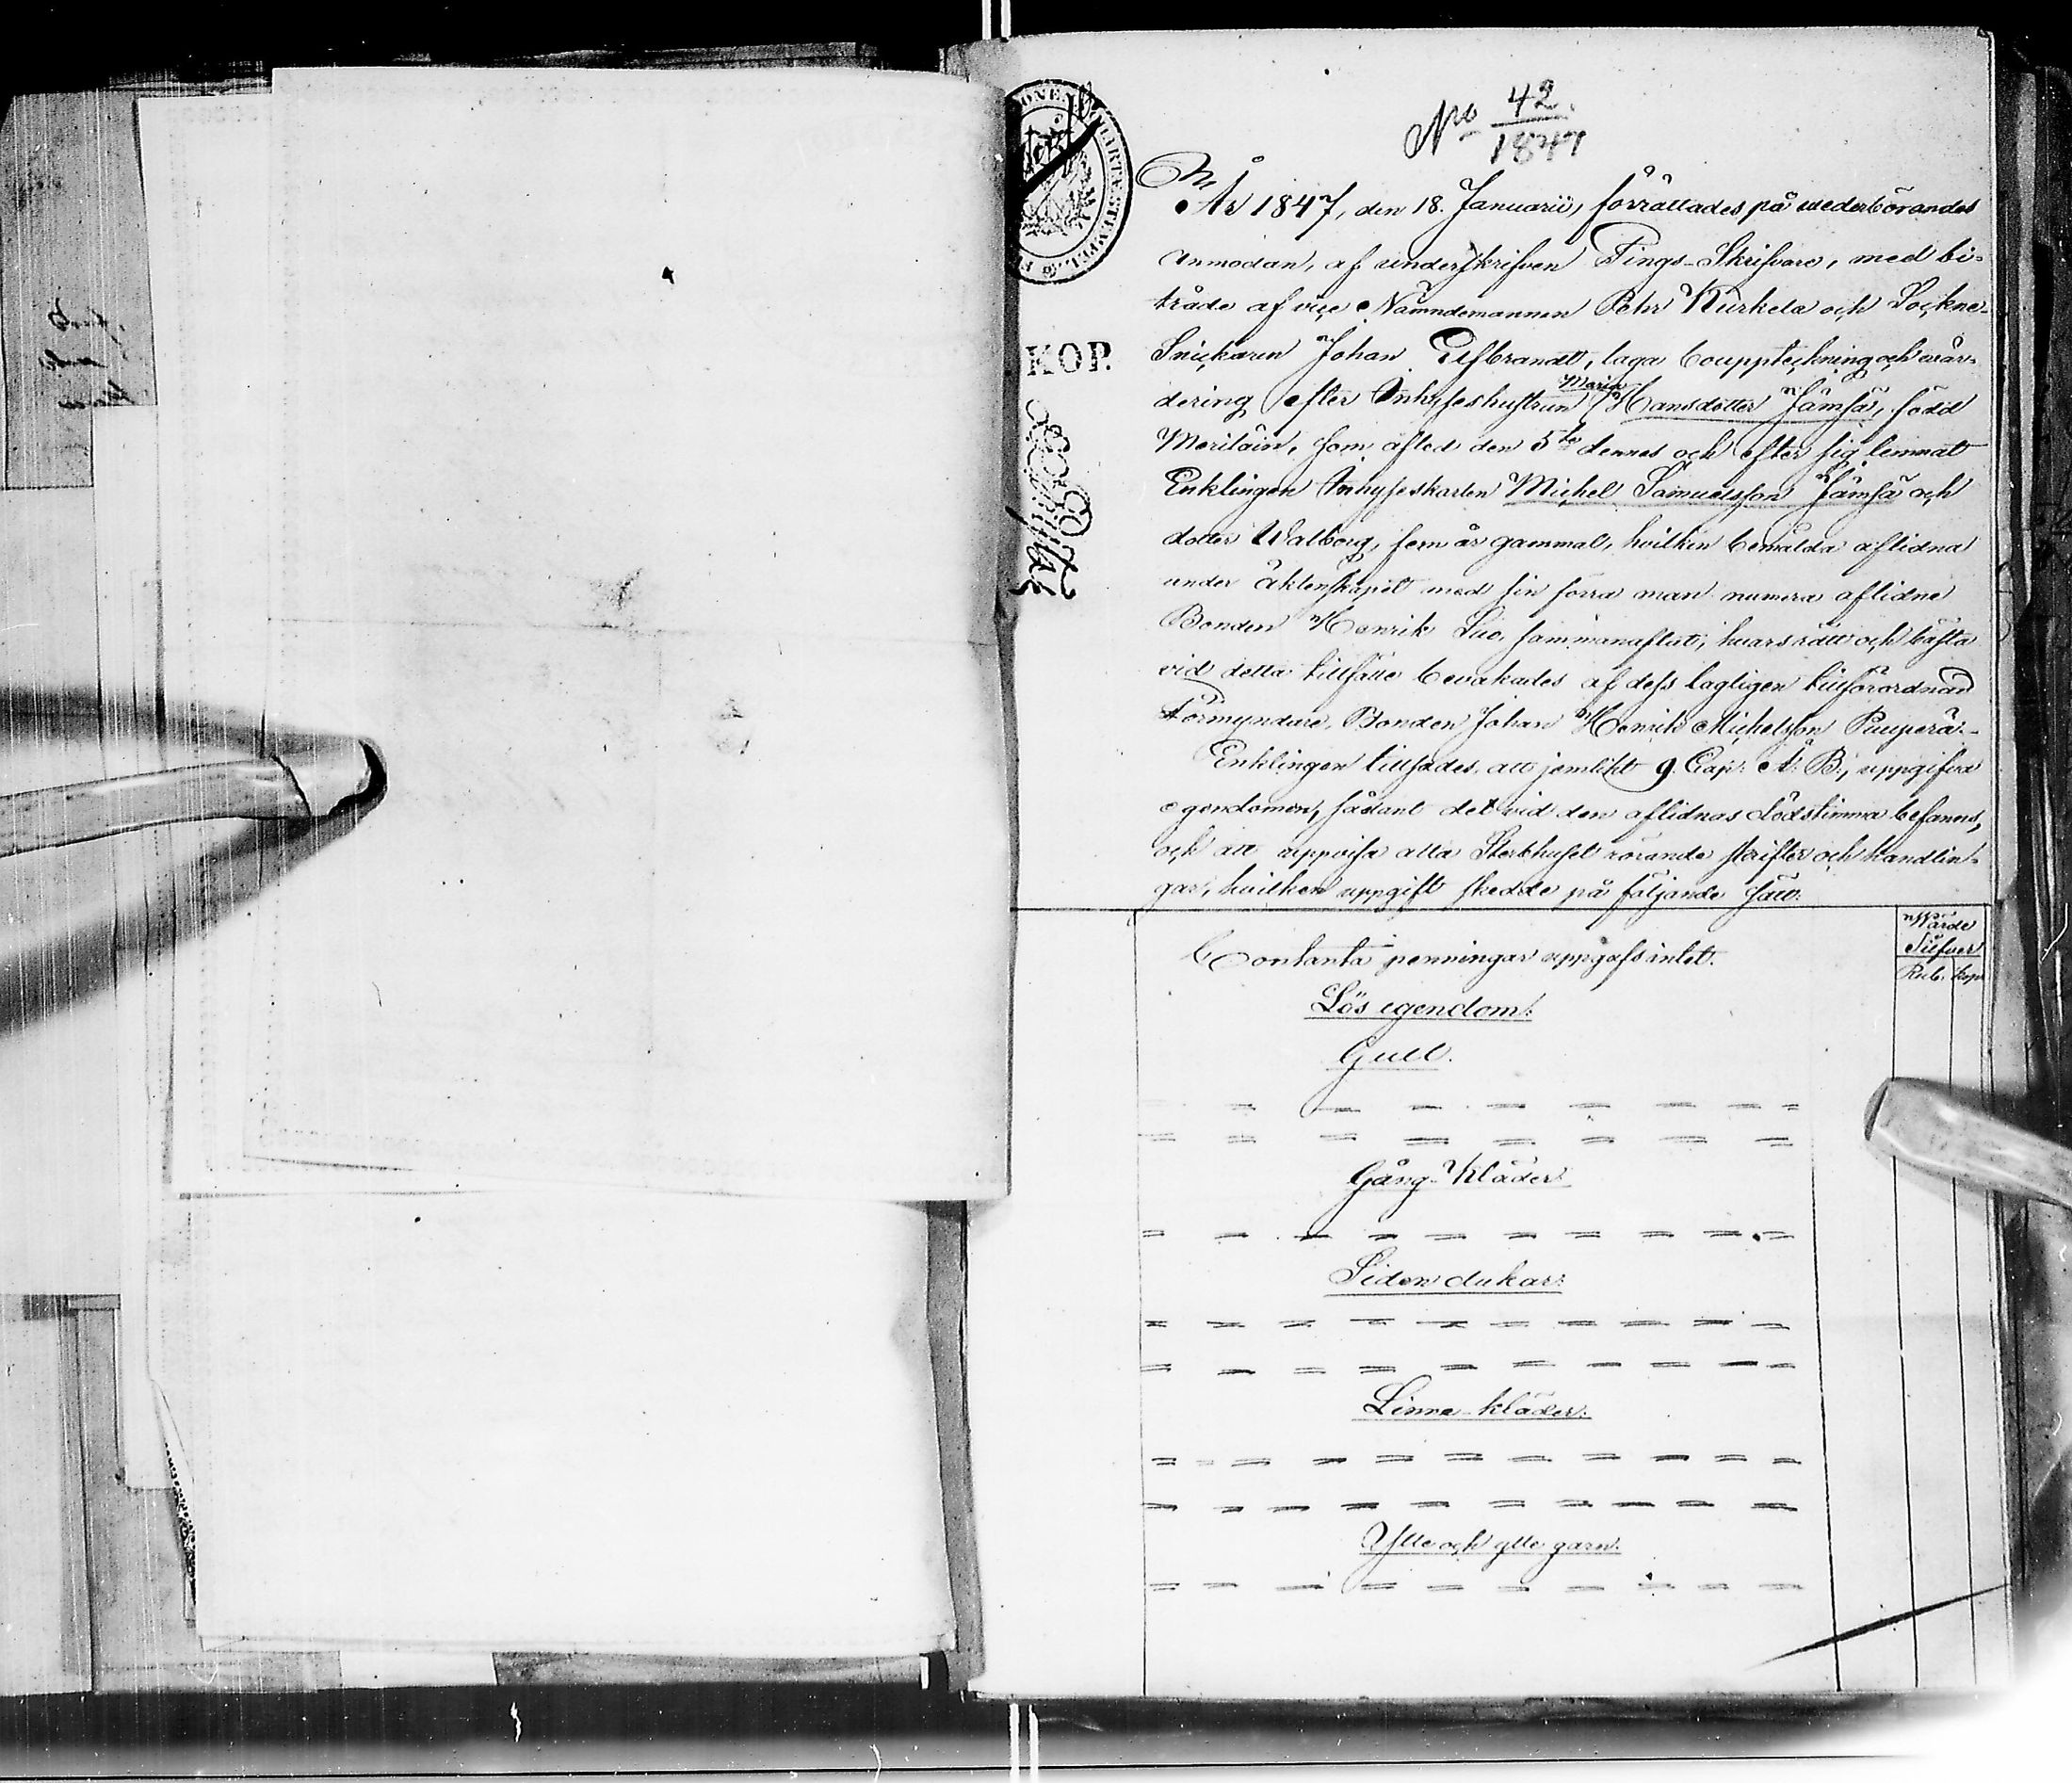 No 42/1847
År 1847, den 18. Januarii, förrättades på wederbörandes
anmodan, af underskrifven Tings-Skrifvare, med bi-
träde af vice Nämndemannen Pehr Kurkela och Sockne-
Snickaren Johan Elfbrandt, laga bouppteckning och wär-
dering efter Inhyseshustrun Maria Hansdotter Jämsä, född
Meriläin, som afled den 5te dennes och efter sig lemnat
Enklingen Inhyseskarlen Michel Samuelsson Jämsä och
dotter Walborg, fem år gammal, hvilken bemälda aflidna
under äktenskapet med sin förra man numera aflidne
Bonden Henrik sammanaflat, hvars rätt och bästa
vid detta tillfälle bevakades af dess lagligen tillförordnad
Förmyndare, Bonden Johan Henrik Michelsson Puuperä.-
Enklingen tillsades, att jemlikt 9. Cap: Ä: B:, uppgifva
egendomen, sådant det vid den aflidnas dödstimma befanns,
och att uppvisa alla Sterbhuset rörande skrifter och handlin-
gar, hvilken uppgift skedde på följande sätt:
KOP.
Wärde
Silfver
Rub. kop
Contanta penningar uppgafs intet.
Lös egendom:
Gull.
Gång-Kläder:
Siden dukar:
Linne-kläder:
Ylle och ylle garn.